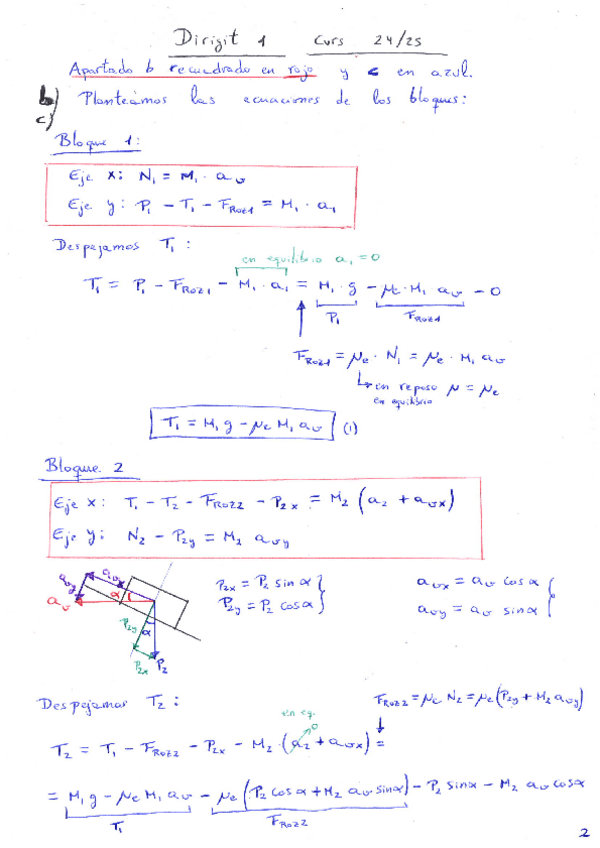 Dirigit 1 Curs 24/25
Apartado b recuadrado en rojo y c en azul.
b) Planteamos las ecuaciones de los bloques:
c)
Bloque 1:
Eje x: N₁ = M₁ · aᵥ
Eje y: P₁ - T₁ - F_ROZ1 = M₁ · a₁
Despejamos T₁:
en equilibrio a₁ = 0
T₁ = P₁ - F_ROZ1 - M₁ · a₁ = M₁ · g - μe · M₁ aᵥ - 0
P₁ F_ROZ1
F_ROZ1 = μe · N₁ = μe · M₁ aᵥ
en reposo μ = μe
en equilibrio
T₁ = M₁ g - μe M₁ aᵥ (1)
Bloque 2
Eje x: T₁ - T₂ - F_ROZ2 - P₂x = M₂ (a₂ + aᵥx)
Eje y: N₂ - P₂y = M₂ aᵥy
aᵥy aᵥx α aᵥ P₂y α P₂x P₂
P₂x = P₂ sin α
P₂y = P₂ cos α
aᵥx = aᵥ cos α
aᵥy = aᵥ sin α
Despejamos T₂:
F_ROZ2 = μe N₂ = μe (P₂y + M₂ aᵥy)
en eq.
0
T₂ = T₁ - F_ROZ2 - P₂x - M₂ · (a₂ + aᵥx) =
= M₁ g - μe M₁ aᵥ - μe (P₂ cos α + M₂ aᵥ sin α) - P₂ sin α - M₂ aᵥ cos α
T₁ F_ROZ2
2